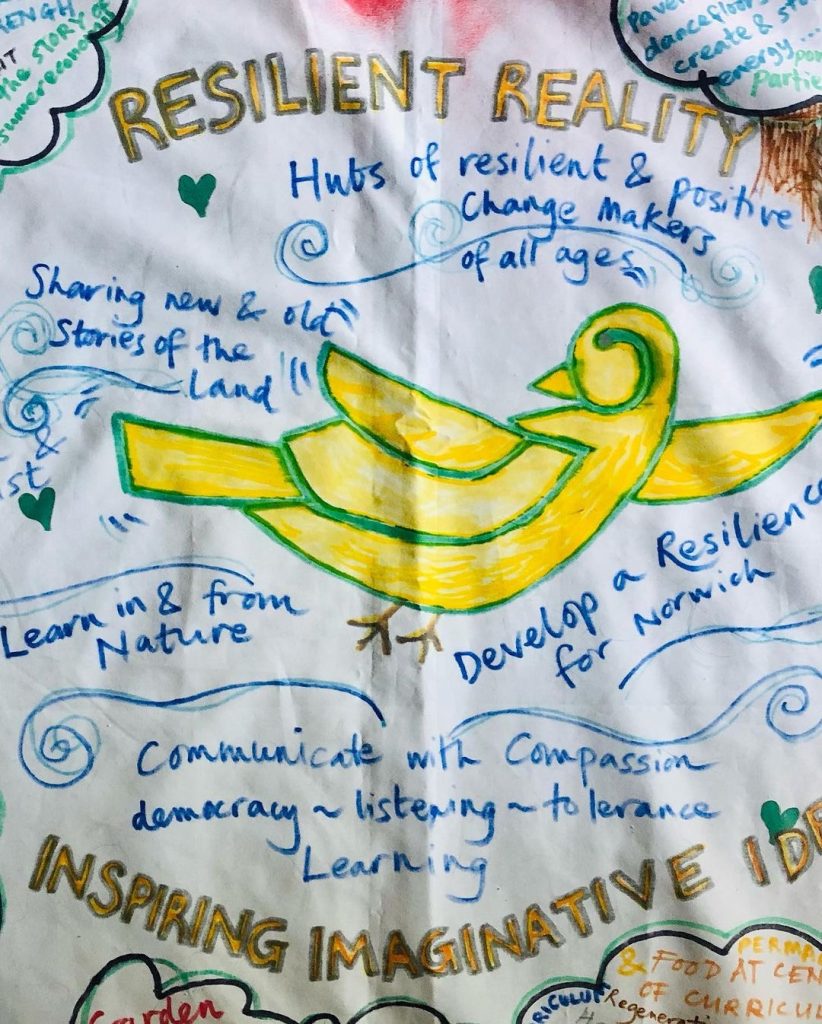 RENGH
IT
the STORY of
sumereconomy
dancefloors
create & st
energy...
Parties
RESILIENT REALITY
Hubs of resilient & positive
Change Makers
of all ages
Sharing new & old
Stories of the
Land
&
ist
Learn in & from
Nature
Develop a Resilience
for Norwich
Communicate with Compassion
democracy ~ listening ~ tolerance
Learning
INSPIRING IMAGINATIVE IDE
Garden
PERMA
& FOOD AT CEN
OF CURRICUL
RICULUM
Regenerati